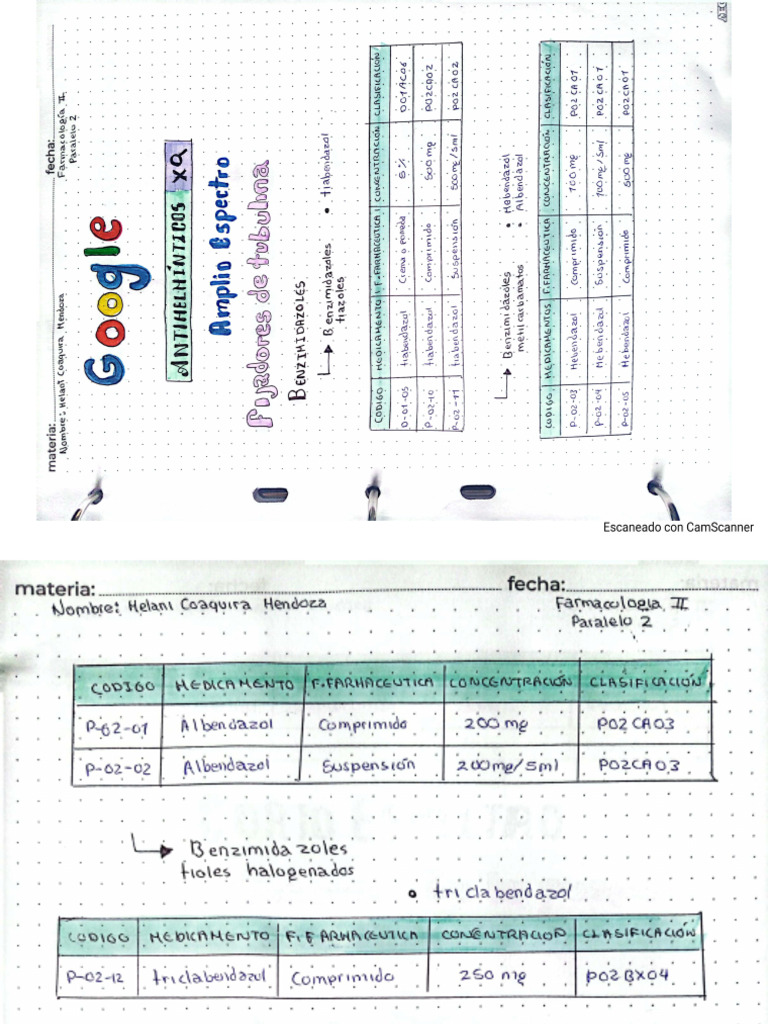 materia:
fecha:
Nombre: Helani Coaquira Mendoza
Farmacología II
Paralelo 2
Google
ANTIHELMÍNTICOS x9
Amplio Espectro
Fijadores de tubulina
BENZIMIDAZOLES
Benzimidazoles tiazoles
• tiabendazol
CODIGO MEDICAMENTO F. FARMACEUTICA CONCENTRACIÓN CLASIFICACIÓN
D-01-05 tiabendazol Crema o pomada 5% D01AC06
P-02-10 tiabendazol Comprimido 500 mg P02CA02
P-02-11 tiabendazol Suspensión 500mg/5ml P02CA02
Benzimidázoles
metilcarbamatos
• Mebendazol
• Albendazol
CODIGO MEDICAMENTOS F. FARMACEUTICA CONCENTRACIÓN CLASIFICACIÓN
P-02-03 Mebendazol Comprimido 100 mg P02CA01
P-02-04 Mebendazol Suspensión 100mg/5ml P02CA01
P-02-05 Mebendazol Comprimido 500 mg P02CA01
Escaneado con CamScanner
materia:
fecha:
Nombre: Helani Coaquira Mendoza
Farmacologia II
Paralelo 2
CODIGO MEDICAMENTO F. FARMACEUTICA CONCENTRACIÓN CLASIFICACIÓN
P-02-01 Albendazol Comprimido 200 mg P02CA03
P-02-02 Albendazol Suspensión 200mg/5ml P02CA03
Benzimidazoles
tioles halogenados
• triclabendazol
CODIGO MEDICAMENTO F. FARMACEUTICA CONCENTRACION CLASIFICACIÓN
P-02-12 triclabendazol Comprimido 250 mg P02BX04